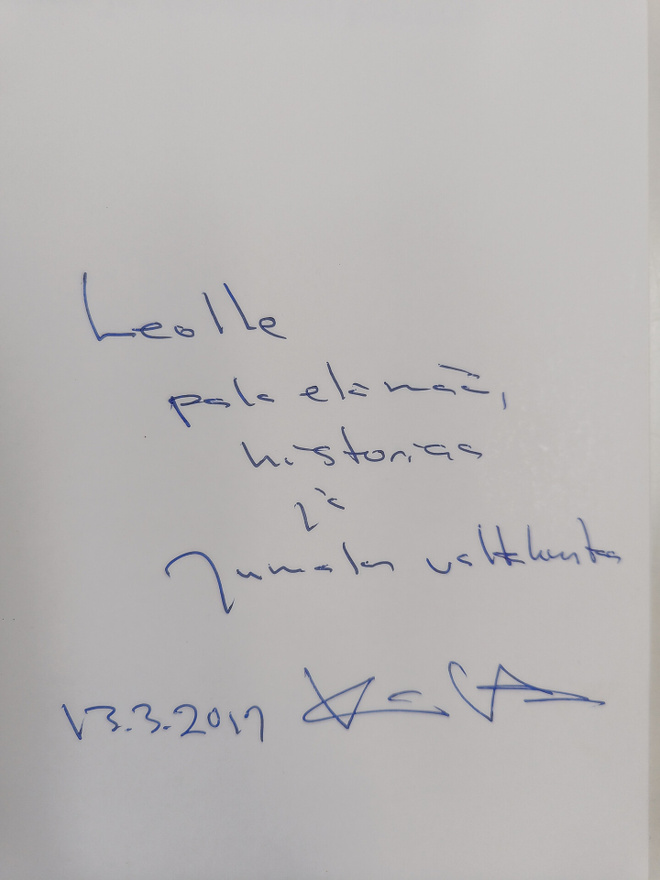 Leolle
pala elämää,
historiaa
ja
Jumalan valtakunta
13.3.2017